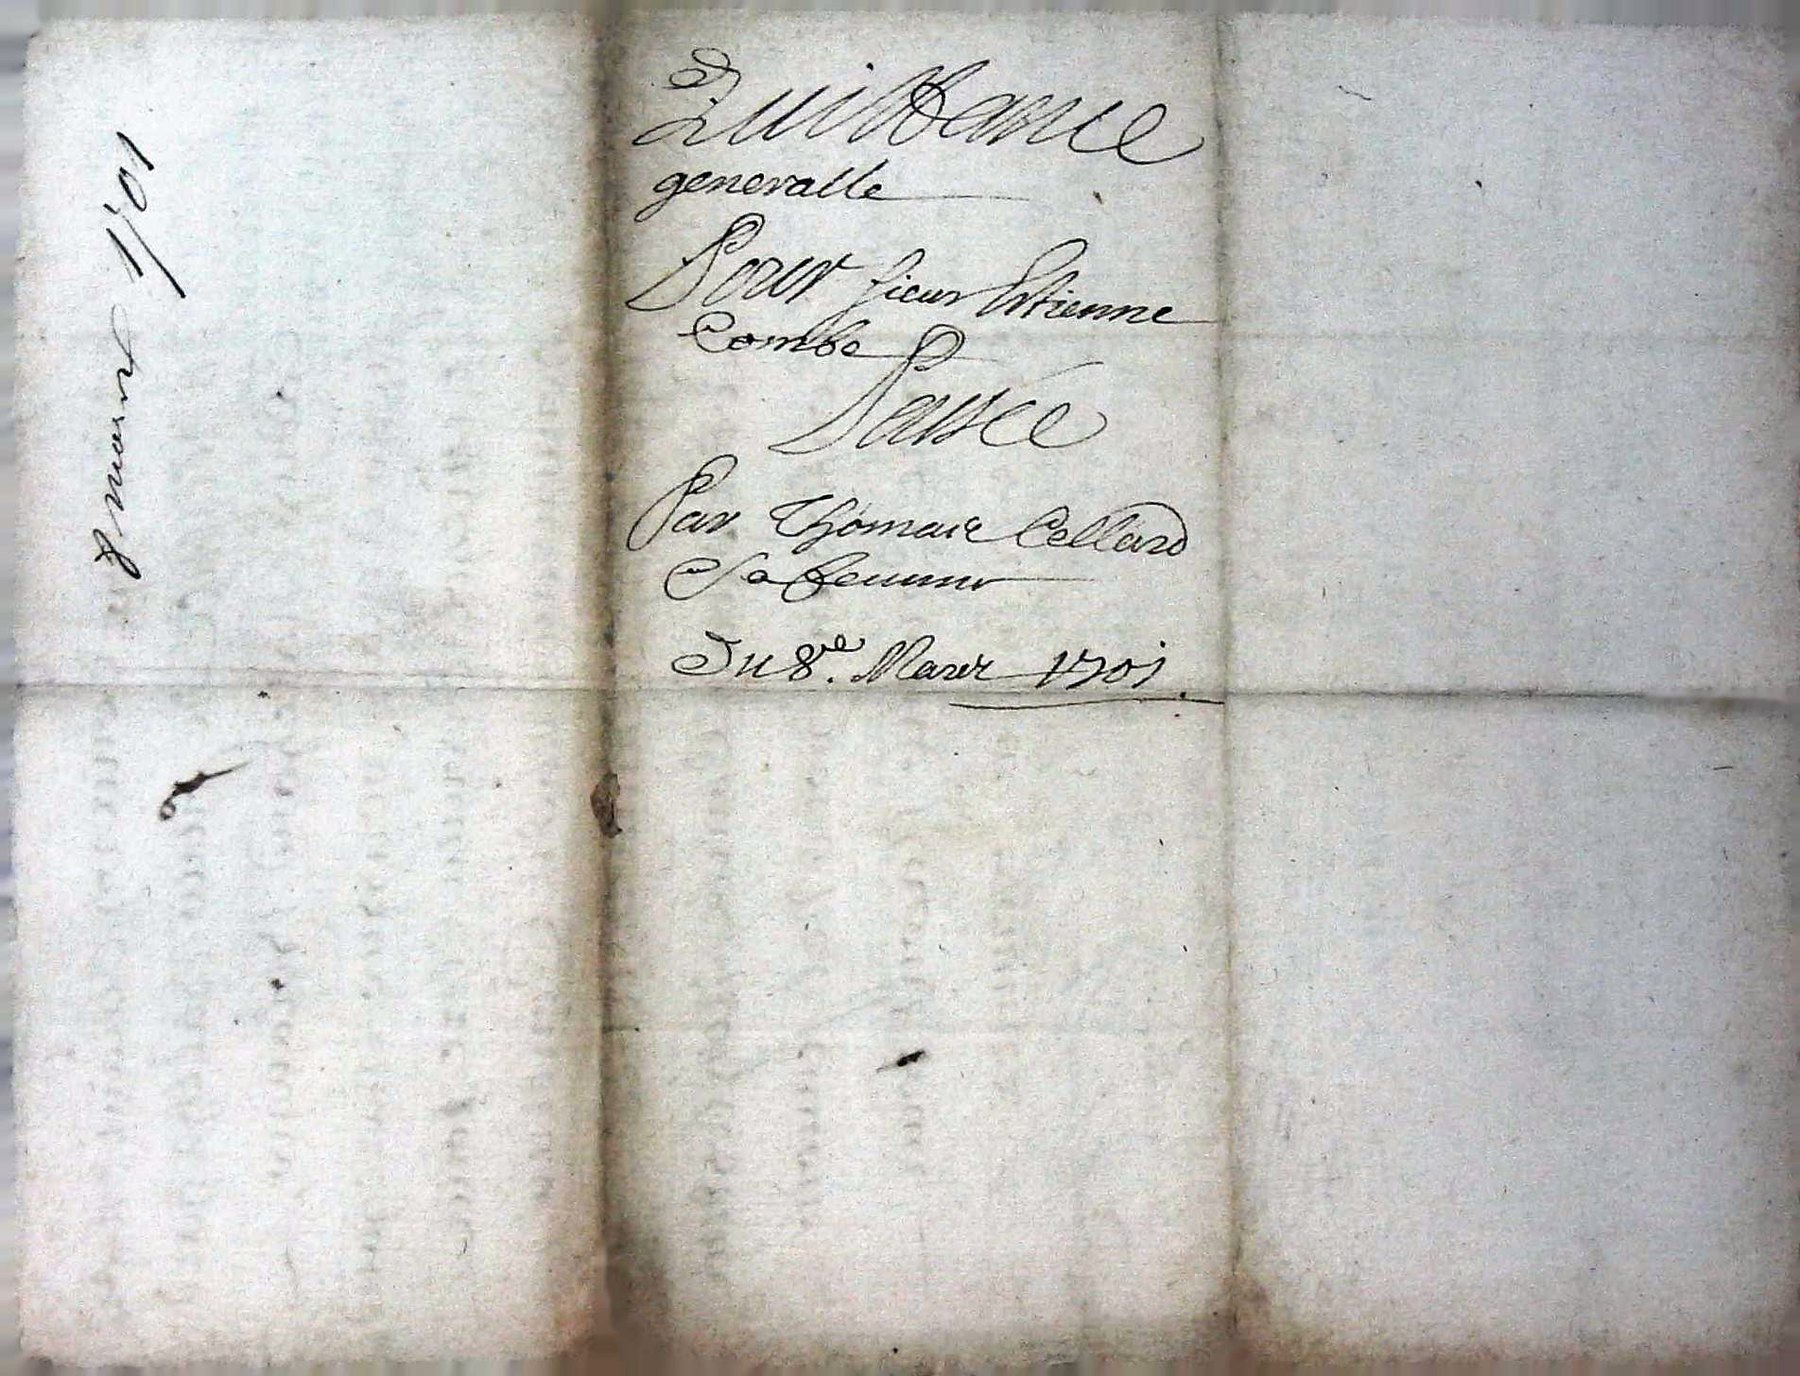 8 mars 1701
Quittance
generalle
Pour sieur Estienne
Combe
Passée
Par Thomas Cellard
Sa femme
Du 8.e Mars 1701.